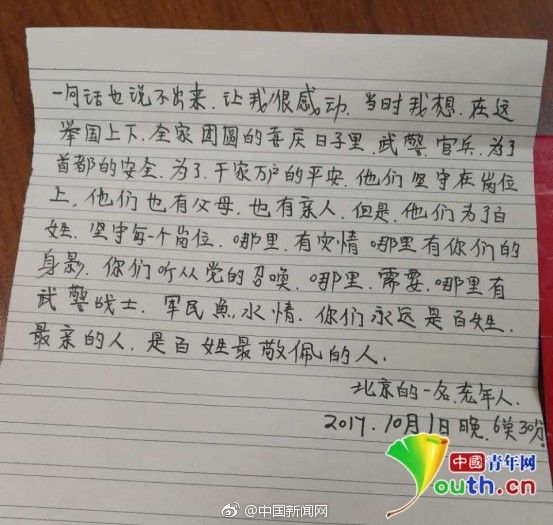 一句话也说不出来.让我很感动.当时我想.在这
举国上下.全家团圆的喜庆日子里.武警.官兵.为了
首都的安全.为了.千家万户的平安.他们坚守在岗位
上.他们也有父母.也有亲人.但是.他们为了百
姓.坚守每一个岗位.哪里.有灾情哪里有你们的
身影.你们听从党的召唤.哪里.需要.哪里有
武警战士.军民鱼水情.你们永远是百姓.
最亲的人.是百姓最敬佩的人.
北京的一名.老年人.
2017.10月1日晚.6点30分.
中國青年网
youth.cn
@中国新闻网